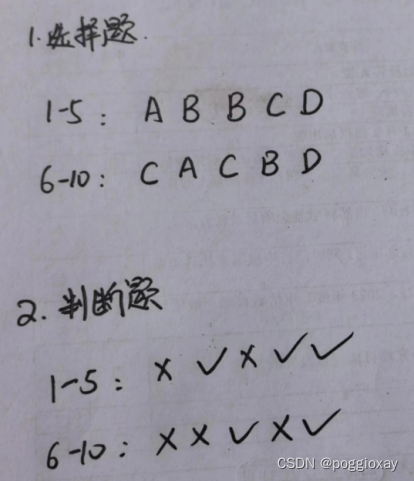 1.选择题.
1-5: A B B C D
6-10: C A C B D
2.判断题
1-5: × ✓ × ✓ ✓
6-10: × × ✓ × ✓
CSDN @poggioxay